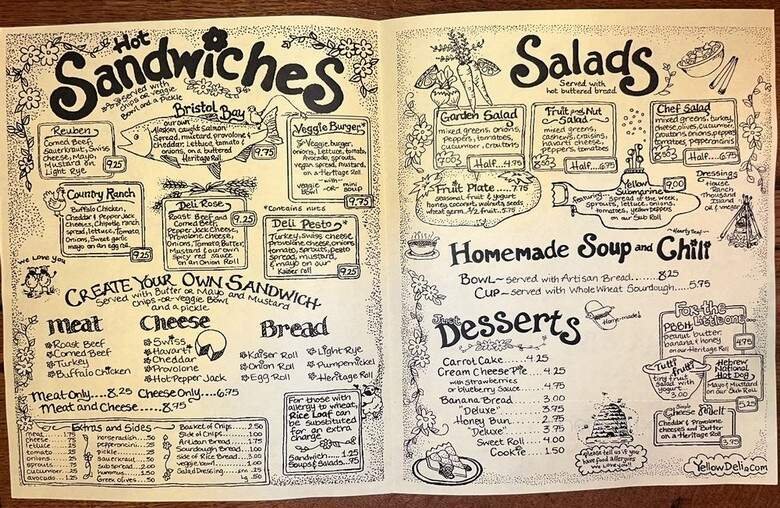 Hot
Sandwiches
served with
chips or veggie
Bowl and a Pickle
Reuben
Corned Beef,
Sauerkraut, Swiss
cheese, Mayo,
Mustard on
Light Rye
9.25
Bristol Bay
our own
Alaskan caught salmon
Spread, mustard, provolone &
cheddar, lettuce, tomato &
onions, on a buttered
Heritage Roll
9.75
Veggie Burger*
Veggie, burger,
onions, lettuce, tomato,
Avocado, sprouts,
vegan spread, mustard,
on a Heritage Roll
with
veggie -or- mini
soup
9.75
*contains nuts
Country Ranch
Buffalo Chicken,
Cheddar & Pepper Jack
Cheeses, Chipotle, ranch
spread, lettuce, Tomato,
Onions, Sweet garlic
mayo on an egg roll
9.25
Deli Rose
Roast Beef and
Corned Beef,
Pepper Jack Cheese,
Provolone Cheese,
Onions, Tomato, Butter,
Mustard & our own
Spicy red sauce
on an Onion Roll
9.25
Deli Pesto*
Turkey, Swiss cheese
provolone cheese, onions,
tomato, sprouts, pesto
spread, mustard,
& mayo on our
Kaiser roll
9.25
we love you
Create Your Own Sandwich
Served with Butter or Mayo and Mustard
chips -or- veggie Bowl
and a pickle
Meat
Roast Beef
Corned Beef
Turkey
Buffalo Chicken
Cheese
Swiss
Havarti
Cheddar
Provolone
Hot Pepper Jack
Bread
Kaiser Roll
Onion Roll
Egg Roll
Light Rye
Pumpernickel
Heritage Roll
Meat Only....8.25 Cheese Only....6.75
Meat and Cheese.....8.75
Extras and Sides
meat
cheese
lettuce
tomato
onions
sprouts
cucumber
avocado
horseradish
pepperoncini
pickle
sauerkraut
sub spread
hummus
Greek olives .50
Basket of Chips 2.50
Side of Chips 1.00
Artisan Bread
Sourdough Bread
Side of Rice Bread
veggie bowl
Salad Dressing
For those with
allergy to wheat,
Rice Loaf can be
substituted
for an extra
charge
Sandwich 1.25
Soups & Salads .75
Salads
Served with
hot buttered bread
Garden Salad
mixed greens, onions,
peppers, tomatoes,
cucumber, croutons
Half...4.75
Fruit and Nut
Salad
mixed greens,
cashews, craisins,
havarti cheese,
peppers, tomatoes
Half...6.75
Chef Salad
mixed greens, turkey,
cheese, olives, cucumber,
croutons, onions, peppers
tomatoes, pepperoncinis
Half...6.75
Fruit Plate.....7.75
seasonal fruit & yogurt
honey, coconut, walnuts, seeds
wheat germ 1/2 fruit..5.75
Yellow
Submarine
9.00
featuring
spread of the week,
sprouts, lettuce, onions,
tomatoes, yellow peppers
on our Sub Roll
Dressings
House
Ranch
Thousand
Island
Oil & Vinegar
Homemade Soup and Chili
Bowl~ served with Artisan Bread......8.25
Cup~ served with Whole Wheat Sourdough....5.75
Just
Desserts
Home-made!
Carrot Cake.....4.25
Cream Cheese Pie....4.25
with Strawberries
or blueberry Sauce....4.75
Banana Bread.....3.00
"Deluxe"....3.75
Honey Bun.....2.75
"Deluxe"....3.75
Sweet Roll....4.00
Cookie....1.50
For-the-
Little one
PBBH
peanut butter,
banana, & honey
on our Heritage Roll
4.75
Tutti fruitti
tiny fruit
Salad with
yogurt
3.00
Hebrew
National
Hot Dog
Mayo & Mustard
on our Sub Roll
5.25
Cheese Melt
Cheddar & Provolone
cheeses and Butter
on a Heritage Roll
3.75
please tell us if you
have food allergies
we love you!
YellowDeli.com